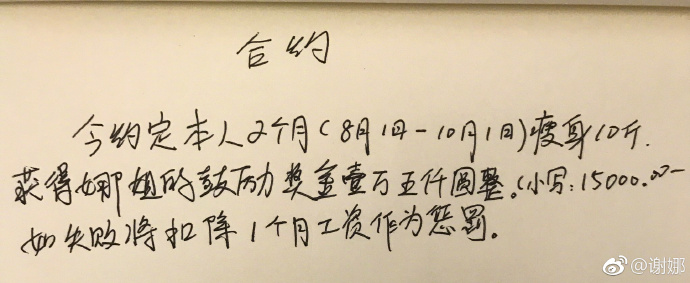 合约
今约定本人2个月(8月1日-10月1日)瘦身10斤.
获得娜姐的鼓励奖金壹万五仟圆整.(小写:15000.00-
如失败将扣除1个月工资作为惩罚.
@谢娜